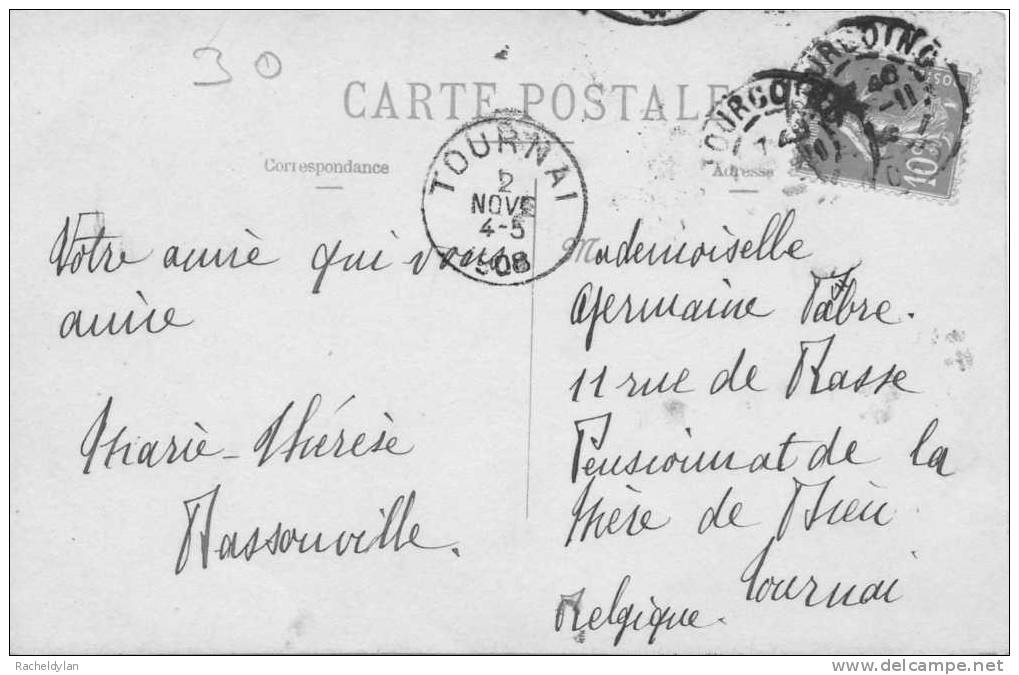 30
CARTE POSTALE
Correspondance
Adresse
TOURNAI
2
NOVE
4-5
1908
TOURCOING
TOURCOING
10
Votre amie qui vous
aime
Marie-Thérèse
Massonville.
Mademoiselle
Germaine Fabre.
11 rue de Rasse
Pensionnat de la
Mère de Dieu
Tournai
Belgique.
Racheldylan
www.delcampe.net